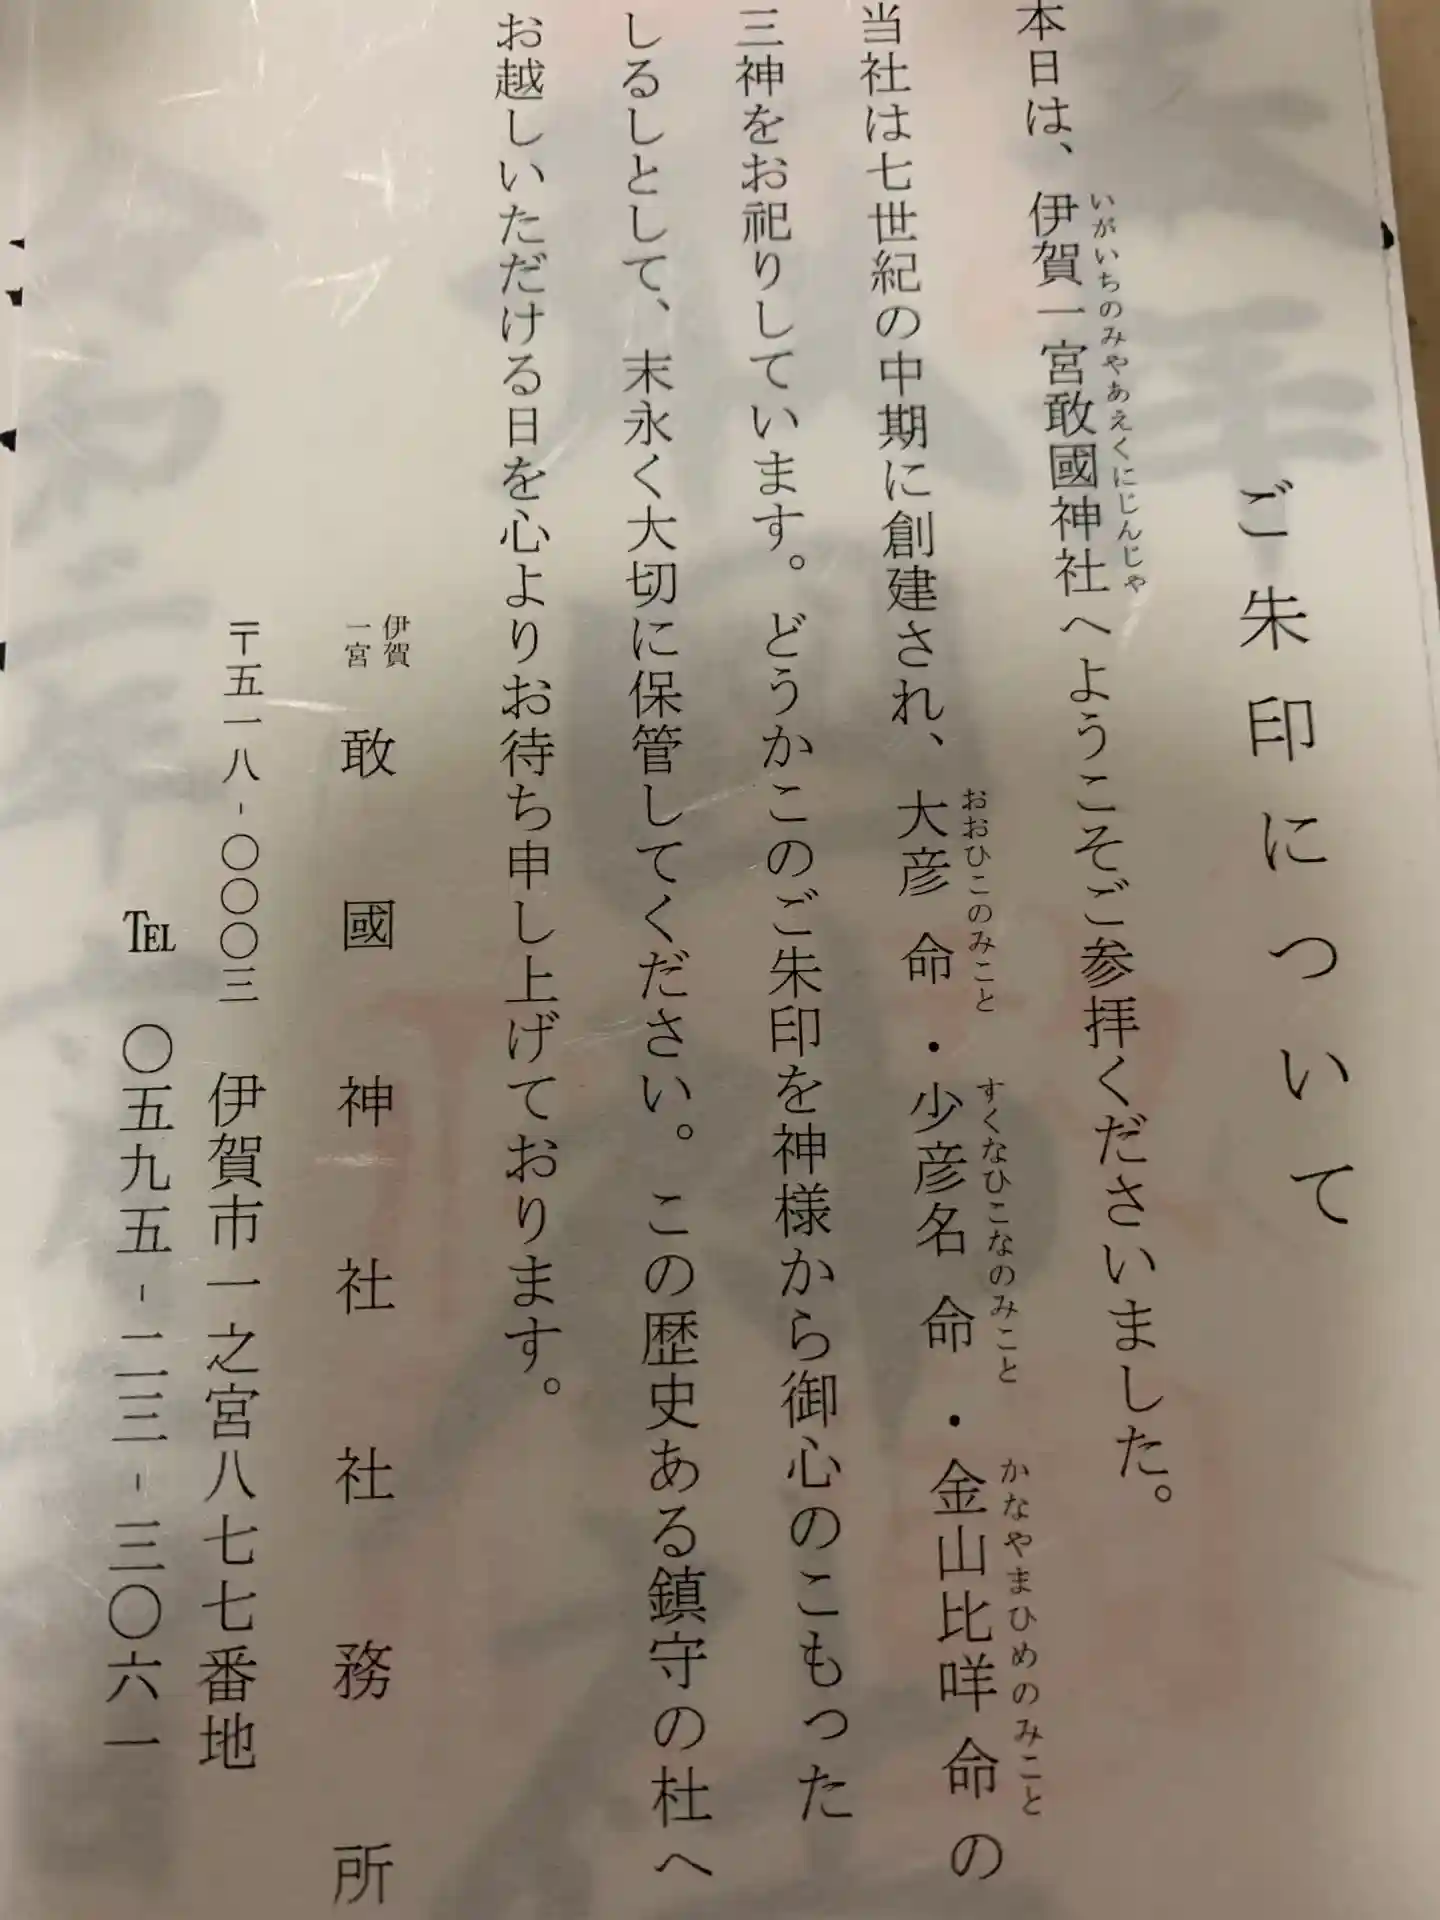 ご朱印について
本日は、伊賀一宮敢國神社へようこそご参拝くださいました。
いがいちのみやあえくにじんじゃ
当社は七世紀の中期に創建され、大彦命・少彦名命・金山比咩命の
おおひこのみこと
すくなひこなのみこと
かなやまひめのみこと
三神をお祀りしています。どうかこのご朱印を神様から御心のこもった
しるしとして、末永く大切に保管してください。この歴史ある鎮守の杜へ
お越しいただける日を心よりお待ち申し上げております。
伊賀
一宮
敢國神社社務所
〒五一八-〇〇〇三 伊賀市一之宮八七七番地
TEL 〇五九五-二三-三〇六一